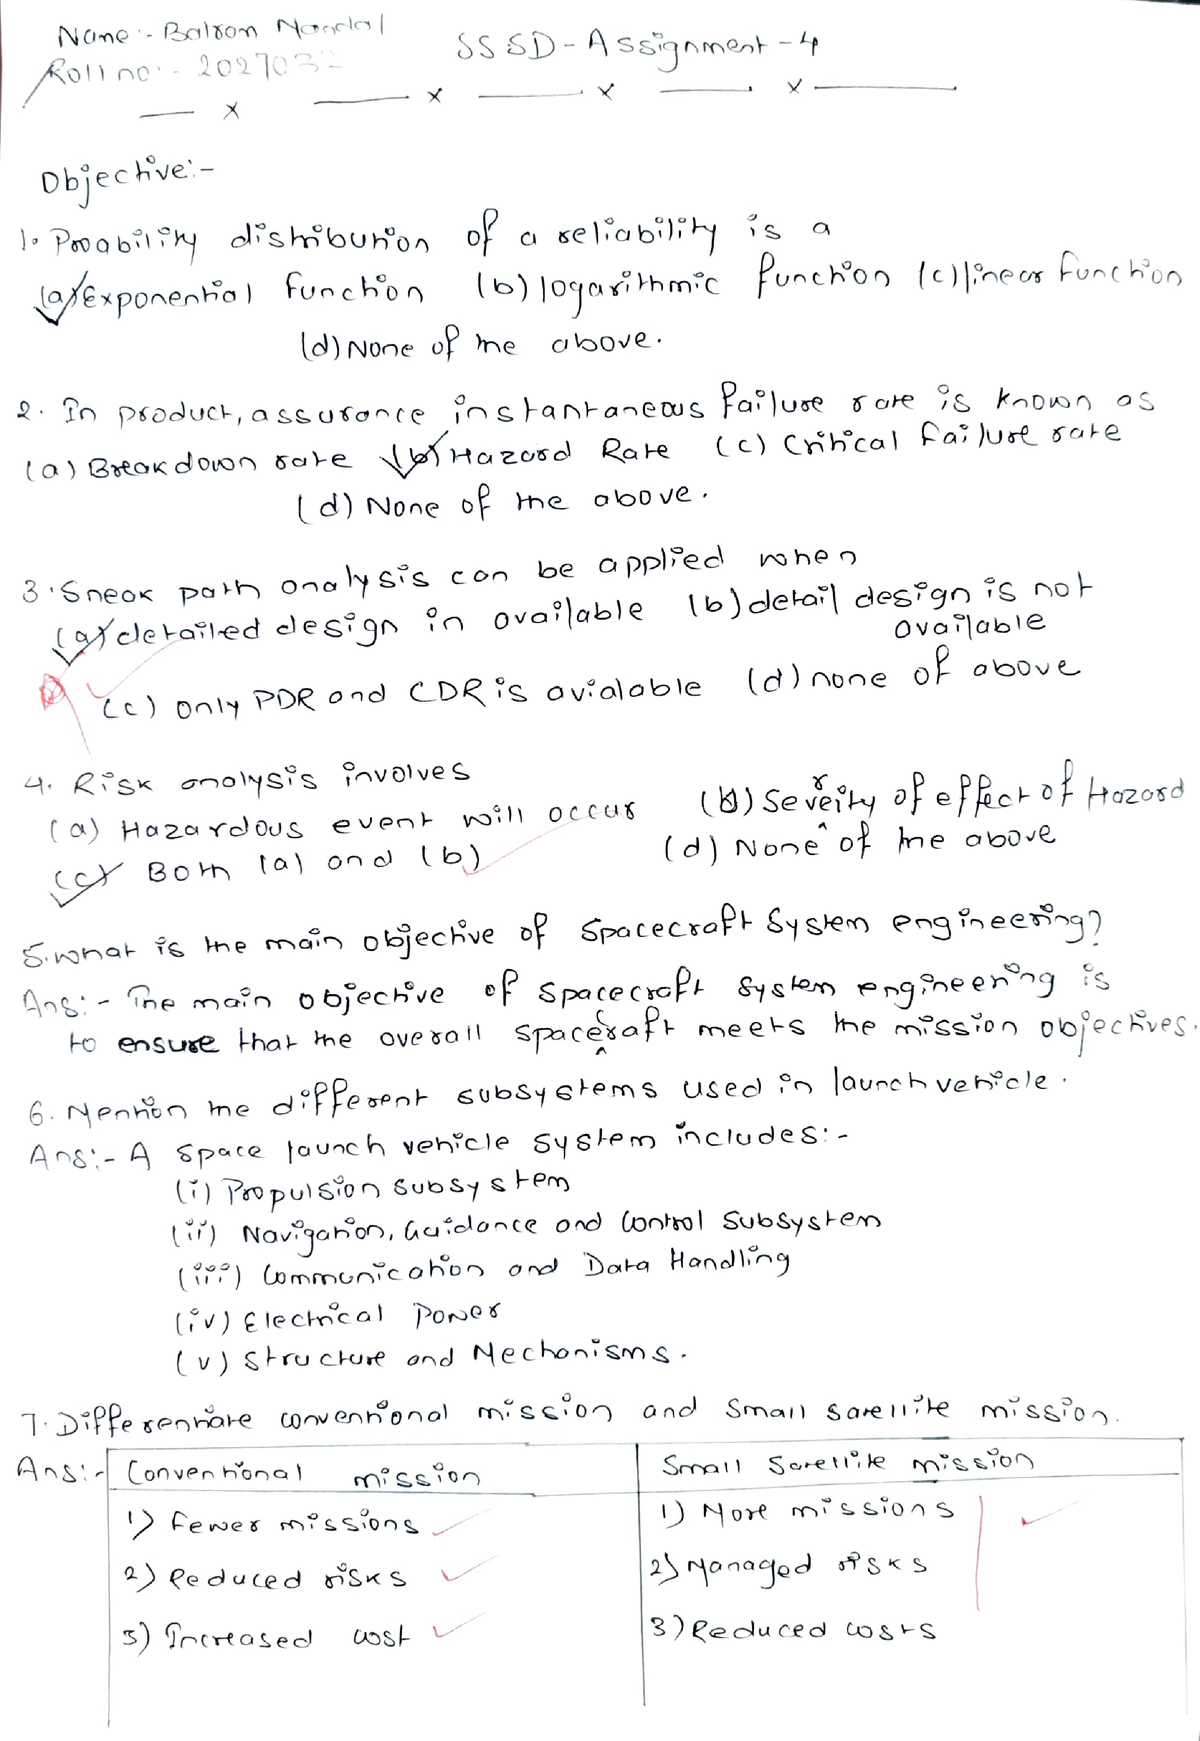 Name :- Balram Mandal
SSSD - Assignment - 4
Roll no :- 2027032
Objective:-
1. Probability distribution of a reliability is a
(a) Exponential function (b) logarithmic function (c) linear function
(d) None of the above.
2. In product, assurance instantaneous failure rate is known as
(a) Breakdown rate (b) Hazard Rate (c) Critical failure rate
(d) None of the above.
3. Sneak path analysis can be applied when
(a) detailed design in available (b) detail design is not
available
(c) only PDR and CDR is avialable (d) none of above
4. Risk analysis involves
(a) Hazardous event will occur (b) Severity of effect of Hazard
(c) Both (a) and (b) (d) None of the above
5. What is the main objective of Spacecraft System engineering?
Ans:- The main objective of spacecraft system engineering is
to ensure that the overall spacecraft meets the mission objectives.
6. Mention the different subsystems used in launch vehicle.
Ans:- A space launch vehicle system includes:-
(i) Propulsion subsystem
(ii) Navigation, Guidance and Control Subsystem
(iii) Communication and Data Handling
(iv) Electrical Power
(v) Structure and Mechanisms.
7. Differentiate conventional mission and small satellite mission.
Ans:- Conventional mission Small Satellite mission
1) Fewer missions 1) More missions
2) Reduced risks 2) Managed risks
3) Increased cost 3) Reduced costs